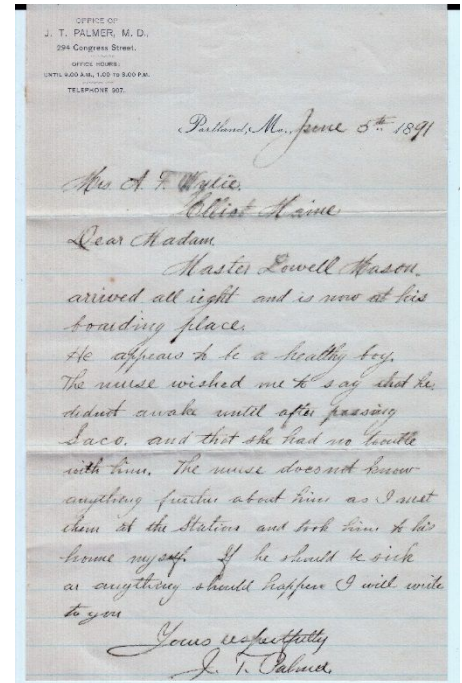 OFFICE OF
J. T. PALMER, M. D.,
294 Congress Street.
OFFICE HOURS:
UNTIL 9.00 A.M., 1.00 TO 3.00 P.M.
TELEPHONE 907.
Portland, Me., June 5th 1891
Mrs. A. F. Wylie.
Elliot Maine
Dear Madam
Master Lowell Mason.
arrived all right and is now at his
boarding place.
He appears to be a healthy boy.
The nurse wished me to say that he
didnot awake until after passing
Saco. and that she had no trouble
with him. The nurse doesnot know
anything further about him as I met
them at the Station and took him to his
home myself. If he should be sick
or anything should happen I will write
to you
Yours respectfully
J. T. Palmer.